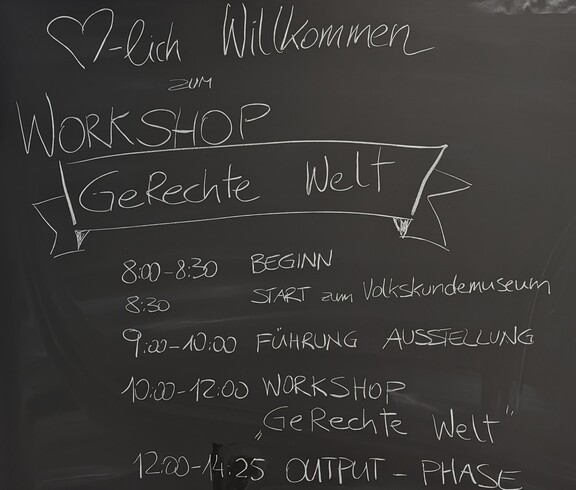 ♡-lich Willkommen
ZUM
WORKSHOP
GeRechte Welt
8:00-8:30 BEGINN
8:30 START zum Volkskundemuseum
9:00-10:00 FÜHRUNG AUSSTELLUNG
10:00-12:00 WORKSHOP
„GeRechte Welt"
12:00-14:25 OUTPUT - PHASE